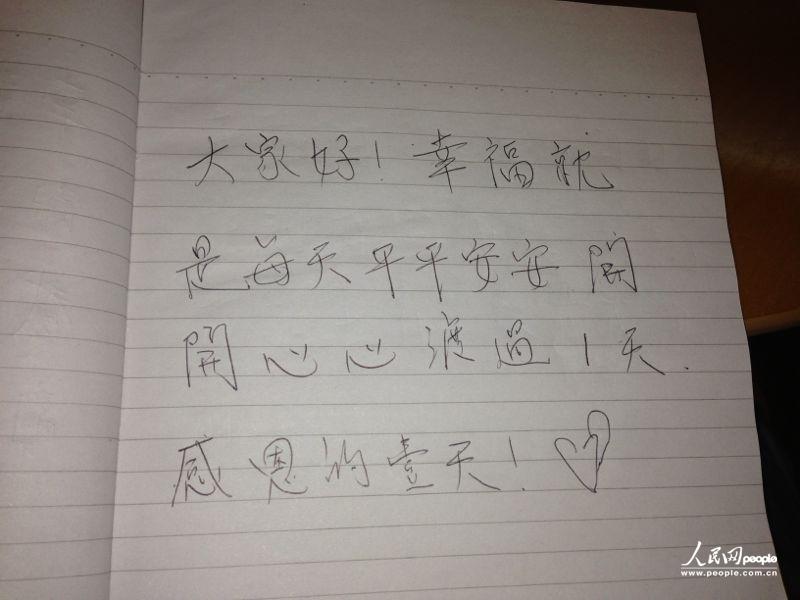 大家好！幸福就
是每天平平安安開
開心心渡過1天.
感恩的壹天！
人民网people
www.people.com.cn